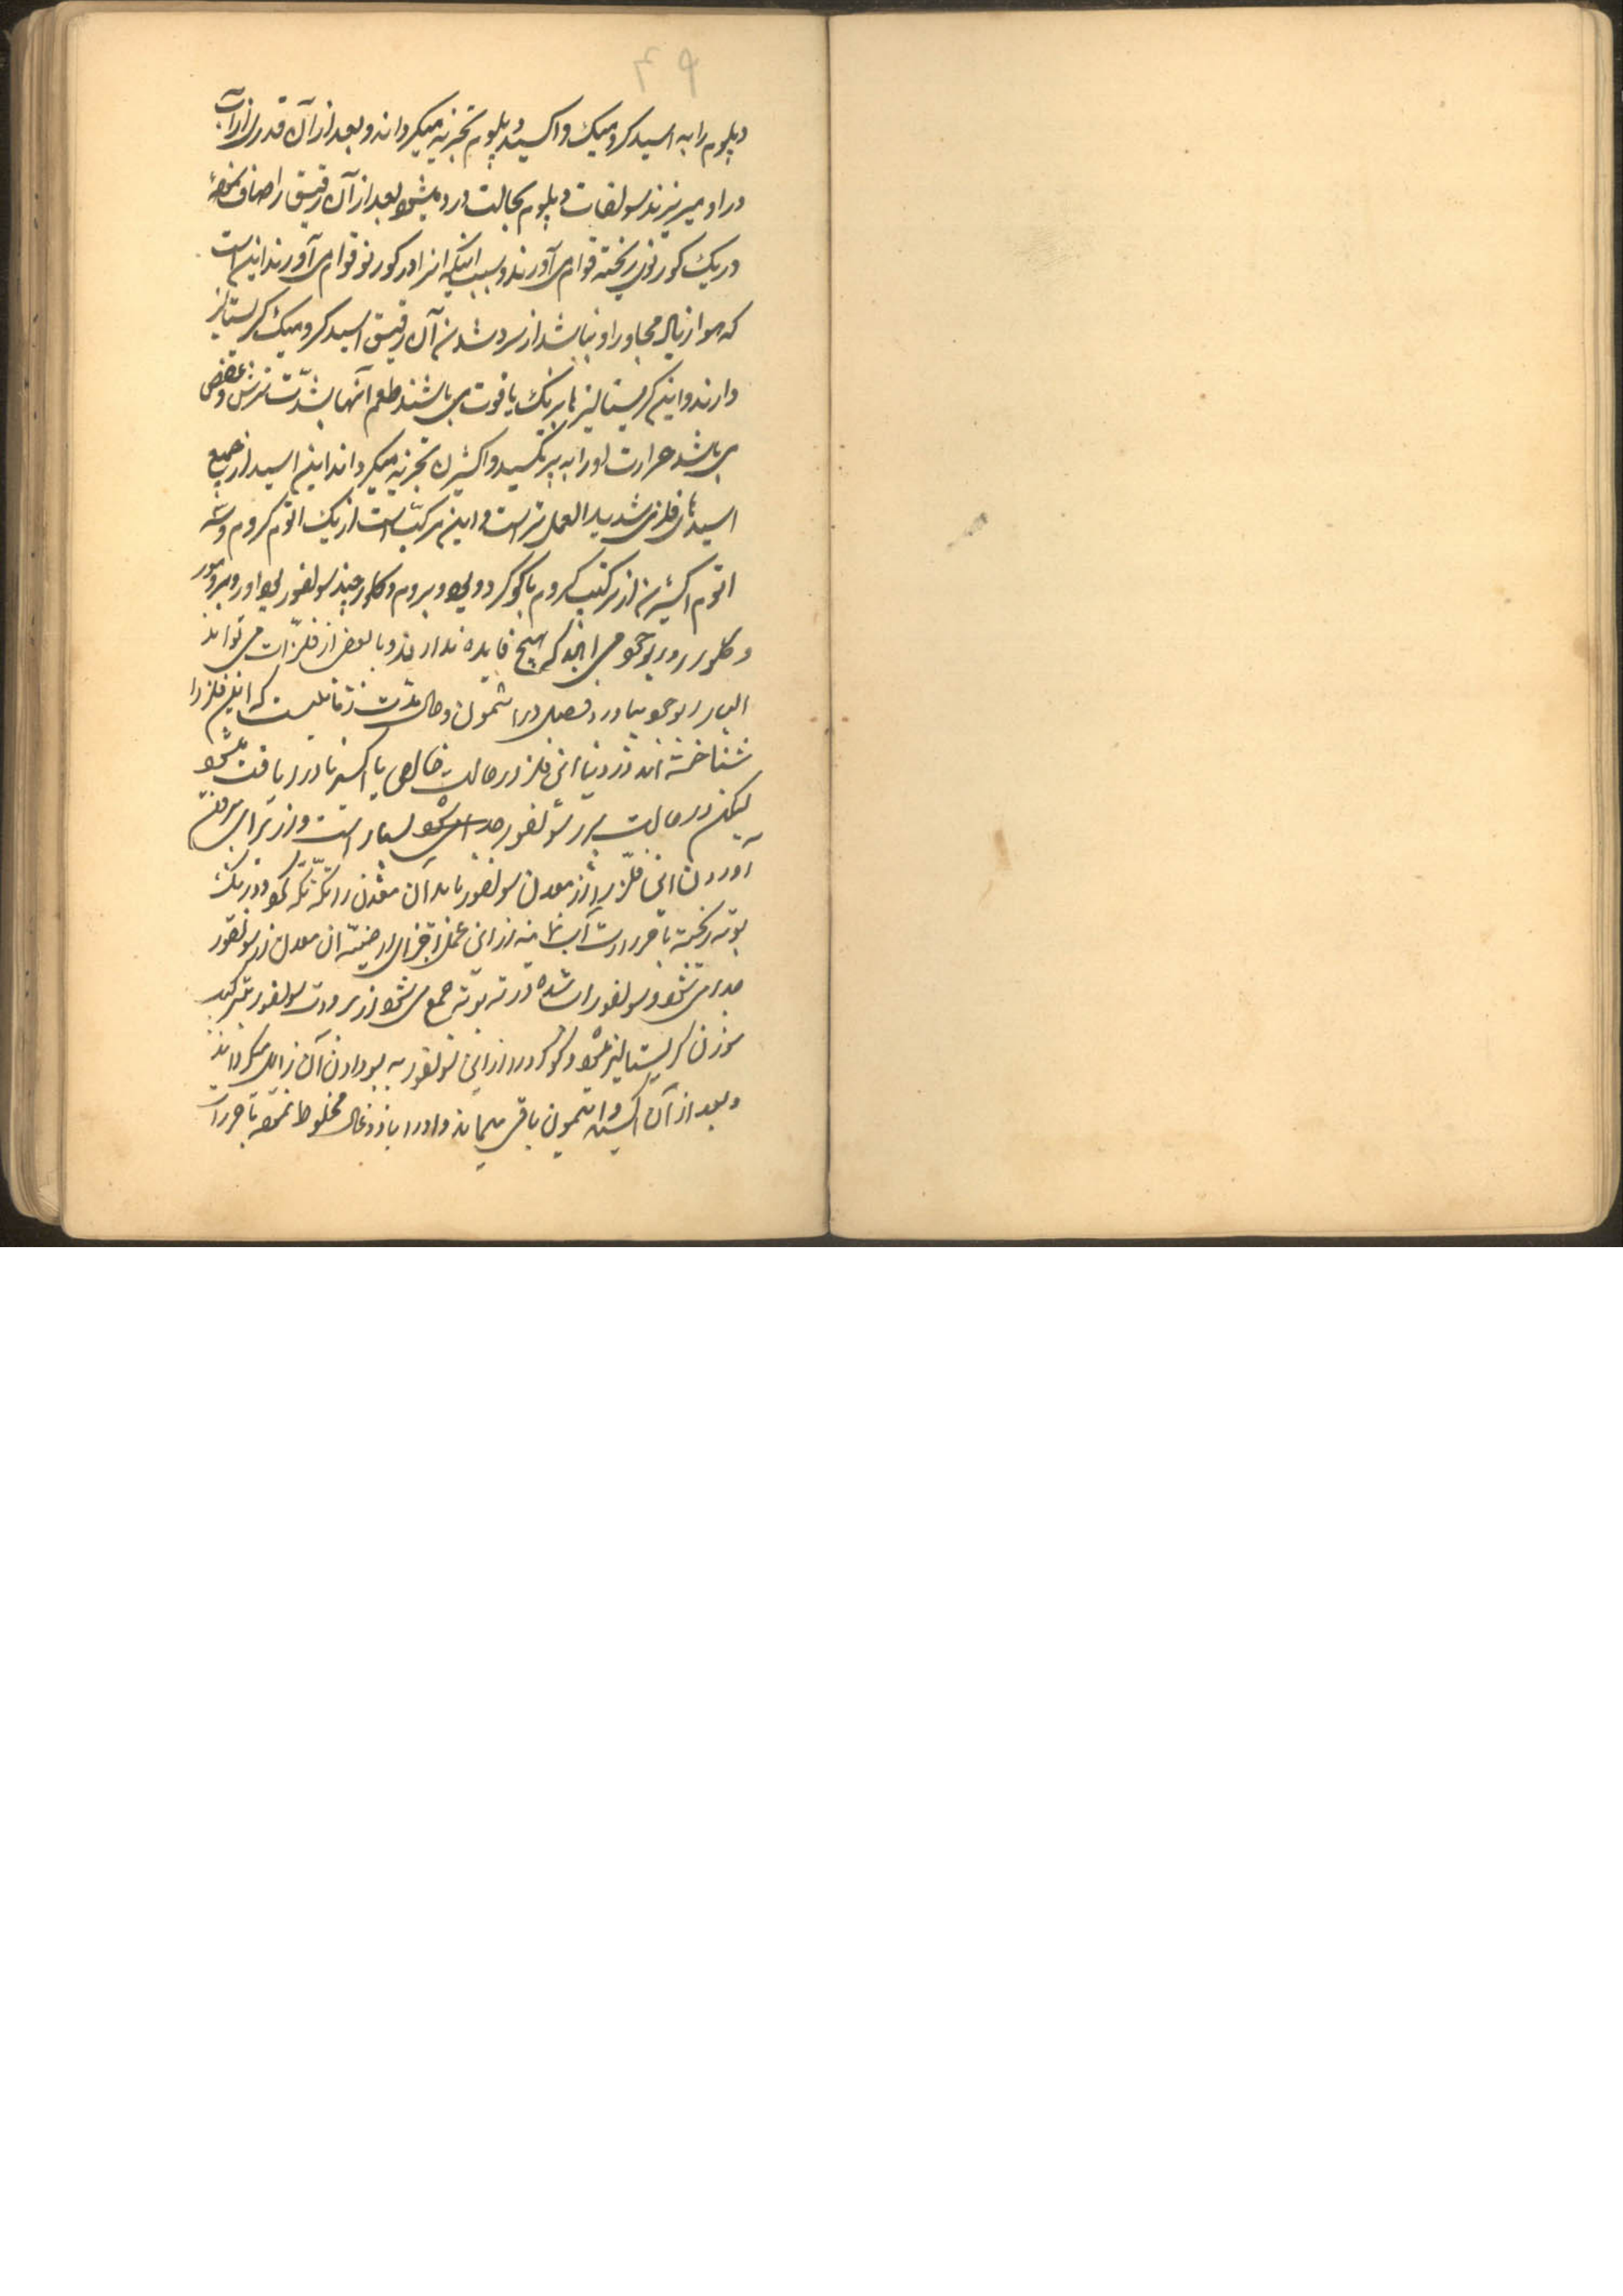 ۴۹
دپلوم را به اسید کرومیک و اکسید دپلوم تجزیه میکرداند و بعد از آن قدری از آب
در او میریزند سولفات دپلوم بحالت درد میشود بعد از آن رقیق را صاف نموده
در یک کورنوی ریخته قوام می آورند و سبب اینکه انرا در کورنو قوام می آورند این است
که هوا زیاد مجاور او نباشد از سرد شدن آن رقیق اسید کرومیک کریستالیز
دارند و این کریستالیزها برنک یاقوت می باشند طعم آنها بشدّت ترش و عفص
می باشد حرارت اورا به پرتکسید و اکثیرن تجزیه میکرداند این اسید از جمیع
اسیدهای فلزی شدید العمل تر است و این مرکب است از یک اتوم کروم و سه
اتوم اکثیرن از ترکیب کروم با کوکرد و ید و بروم و کلور چند سولفور یدور و برومور
و کلورور بوجود می که هیچ فایده ندارند و با بعض از فلزّات می تواند
الیار بوجود بیاورد فصل در اشمون و حال مدت زمانیست که این فلز را
شناخته اند در دنیا این فلز در حالت خالص یا اکسید نادر یافت میشود
لیکن در حالت سولفور بسیار است و از برای
آوردن این فلز را از معدن سولفور باید آن معدن را تکّه تکّه کرد و در یک
بوته ریخته با حرارت آب نماینه از این عمل اجزای ارضیّه ان معدن از سولفور
جدا می شود و سولفور اب شده در ته بوته جمع می شود از برودت سولفور
سوزن کریستالیز میشود و کوکرد را از این سولفور به بو دادن آن زایل میکردانند
و بعد از آن اکسید اشمون باقی میماند و اورا با زغال مخلوط نموده با حرارت